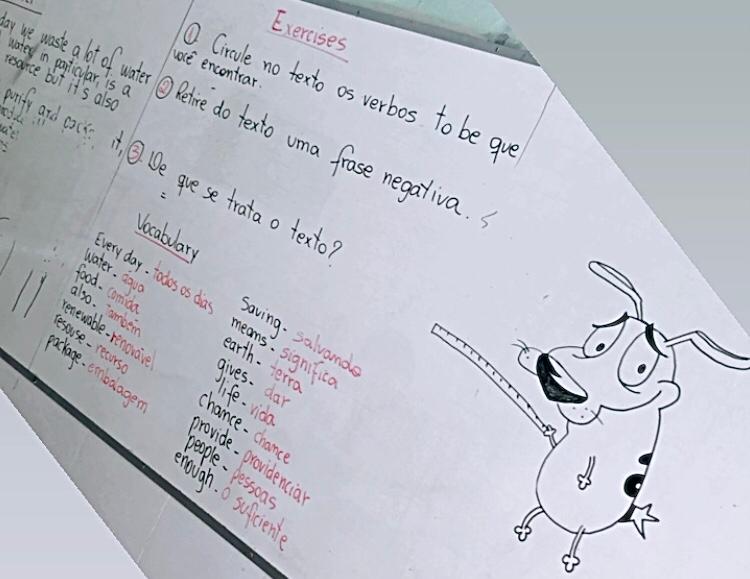 day we waste a lot of water
water in particular is a
resource but it's also
purify and
it,
Exercises
① Circule no texto os verbos to be que
você encontrar.
② Retire do texto uma frase negativa.
③ De que se trata o texto?
Vocabulary
Every day - todos os dias
water - água
food - comida
also - também
renewable - renovável
resouse - recurso
package - embalagem
Saving - salvando
means - significa
earth - terra
gives - dar
life - vida
chance - chance
provide - providenciar
people - pessoas
enough - o suficiente